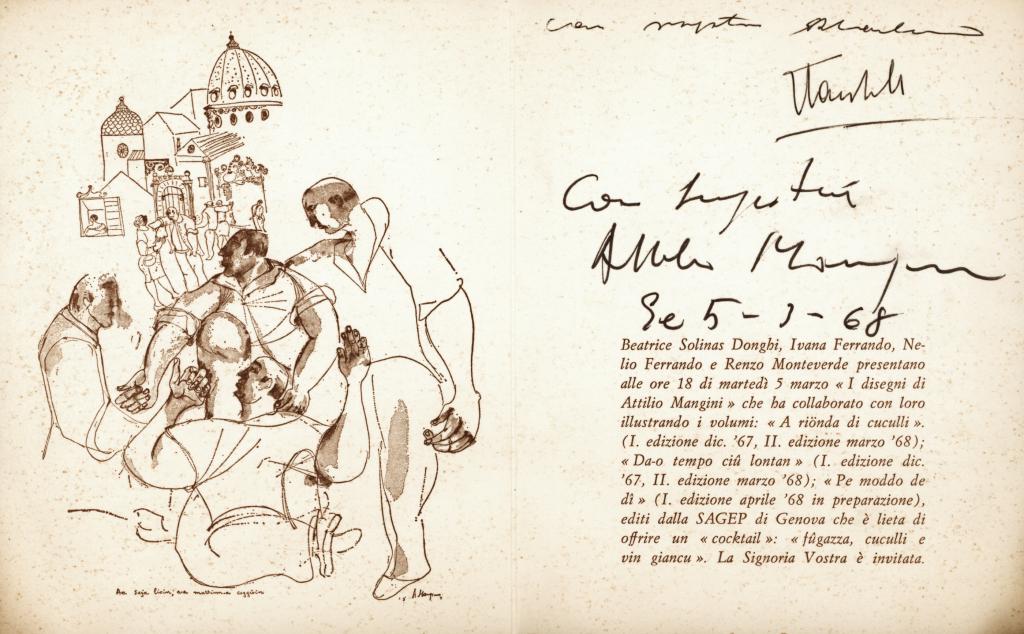 Con
Attilio Mangini
Ge 5 - 3 - 68
Beatrice Solinas Donghi, Ivana Ferrando, Ne-
lio Ferrando e Renzo Monteverde presentano
alle ore 18 di martedì 5 marzo « I disegni di
Attilio Mangini » che ha collaborato con loro
illustrando i volumi: « A riönda di cuculli ».
(I. edizione dic. '67, II. edizione marzo '68);
« Da-o tempo ciû lontan » (I. edizione dic.
'67, II. edizione marzo '68); « Pe moddo de
dî » (I. edizione aprile '68 in preparazione),
editi dalla SAGEP di Genova che è lieta di
offrire un « cocktail »: « fûgazza, cuculli e
vin giancu ». La Signoria Vostra è invitata.